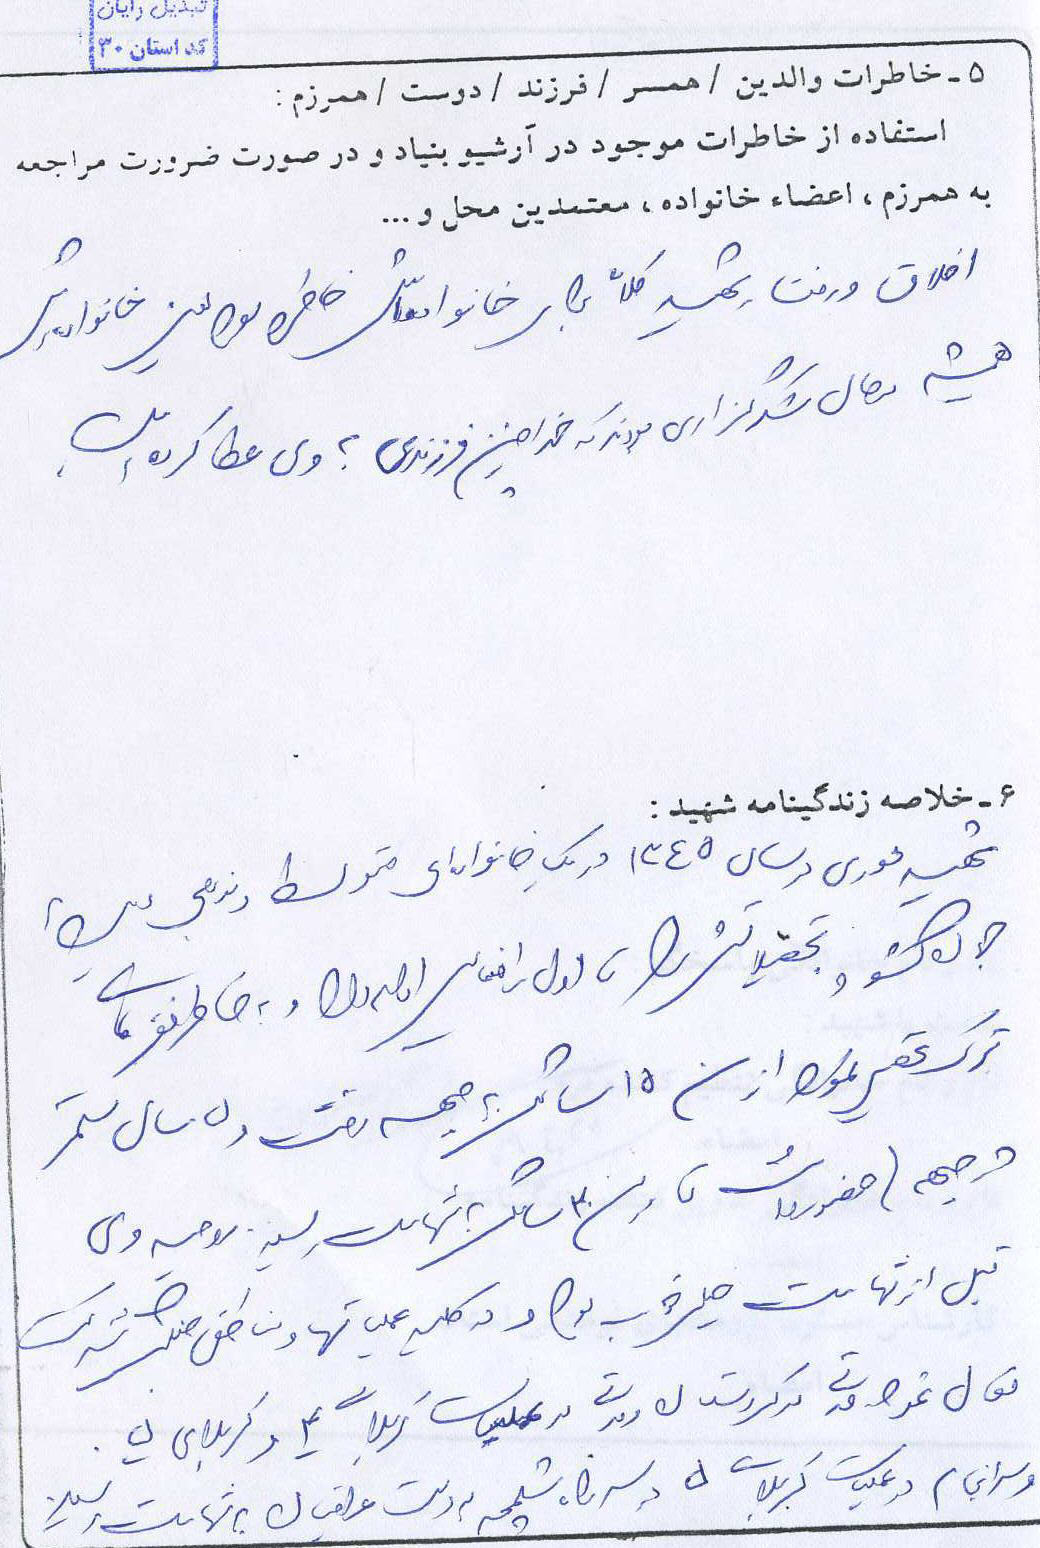 تبدیل رایان
کد استان ۳۰
۵ ـ خاطرات والدین / همسر / فرزند / دوست / همرزم :
استفاده از خاطرات موجود در آرشیو بنیاد و در صورت ضرورت مراجعه
به همرزم ، اعضاء خانواده ، معتمدین محل و ...
اخلاق و رفتار شهید کلاً برای خانواده‌اش خاطره بود یعنی خانواده‌اش
همیشه در حال شکرگزاری بودند که خدا چنین فرزندی به وی عطا کرده است
۶ ـ خلاصه زندگینامه شهید :
شهید در سال ۱۳۴۵ در یک خانواده‌ای متوسط و مذهبی
و تحصیلاتش را تا اول راهنمایی ادامه داد و به خاطر فقر مالی
ترک تحصیل نمود از سن ۱۵ سالگی به جبهه رفت و ۵ سال مستمر
در جبهه حضور داشت تا در سن ۲۰ سالگی به شهادت رسید. روحیه وی
قبل از شهادت خیلی خوب بود و در کلیه عملیاتها و مناطق جنگی شرکت
فعال نمود مدتی در کردستان و مدتی در عملیات کربلای ۴ و کربلای ۵ .
و سرانجام در عملیات کربلای ۵ در شلمچه بدست عراقیان به شهادت رسید